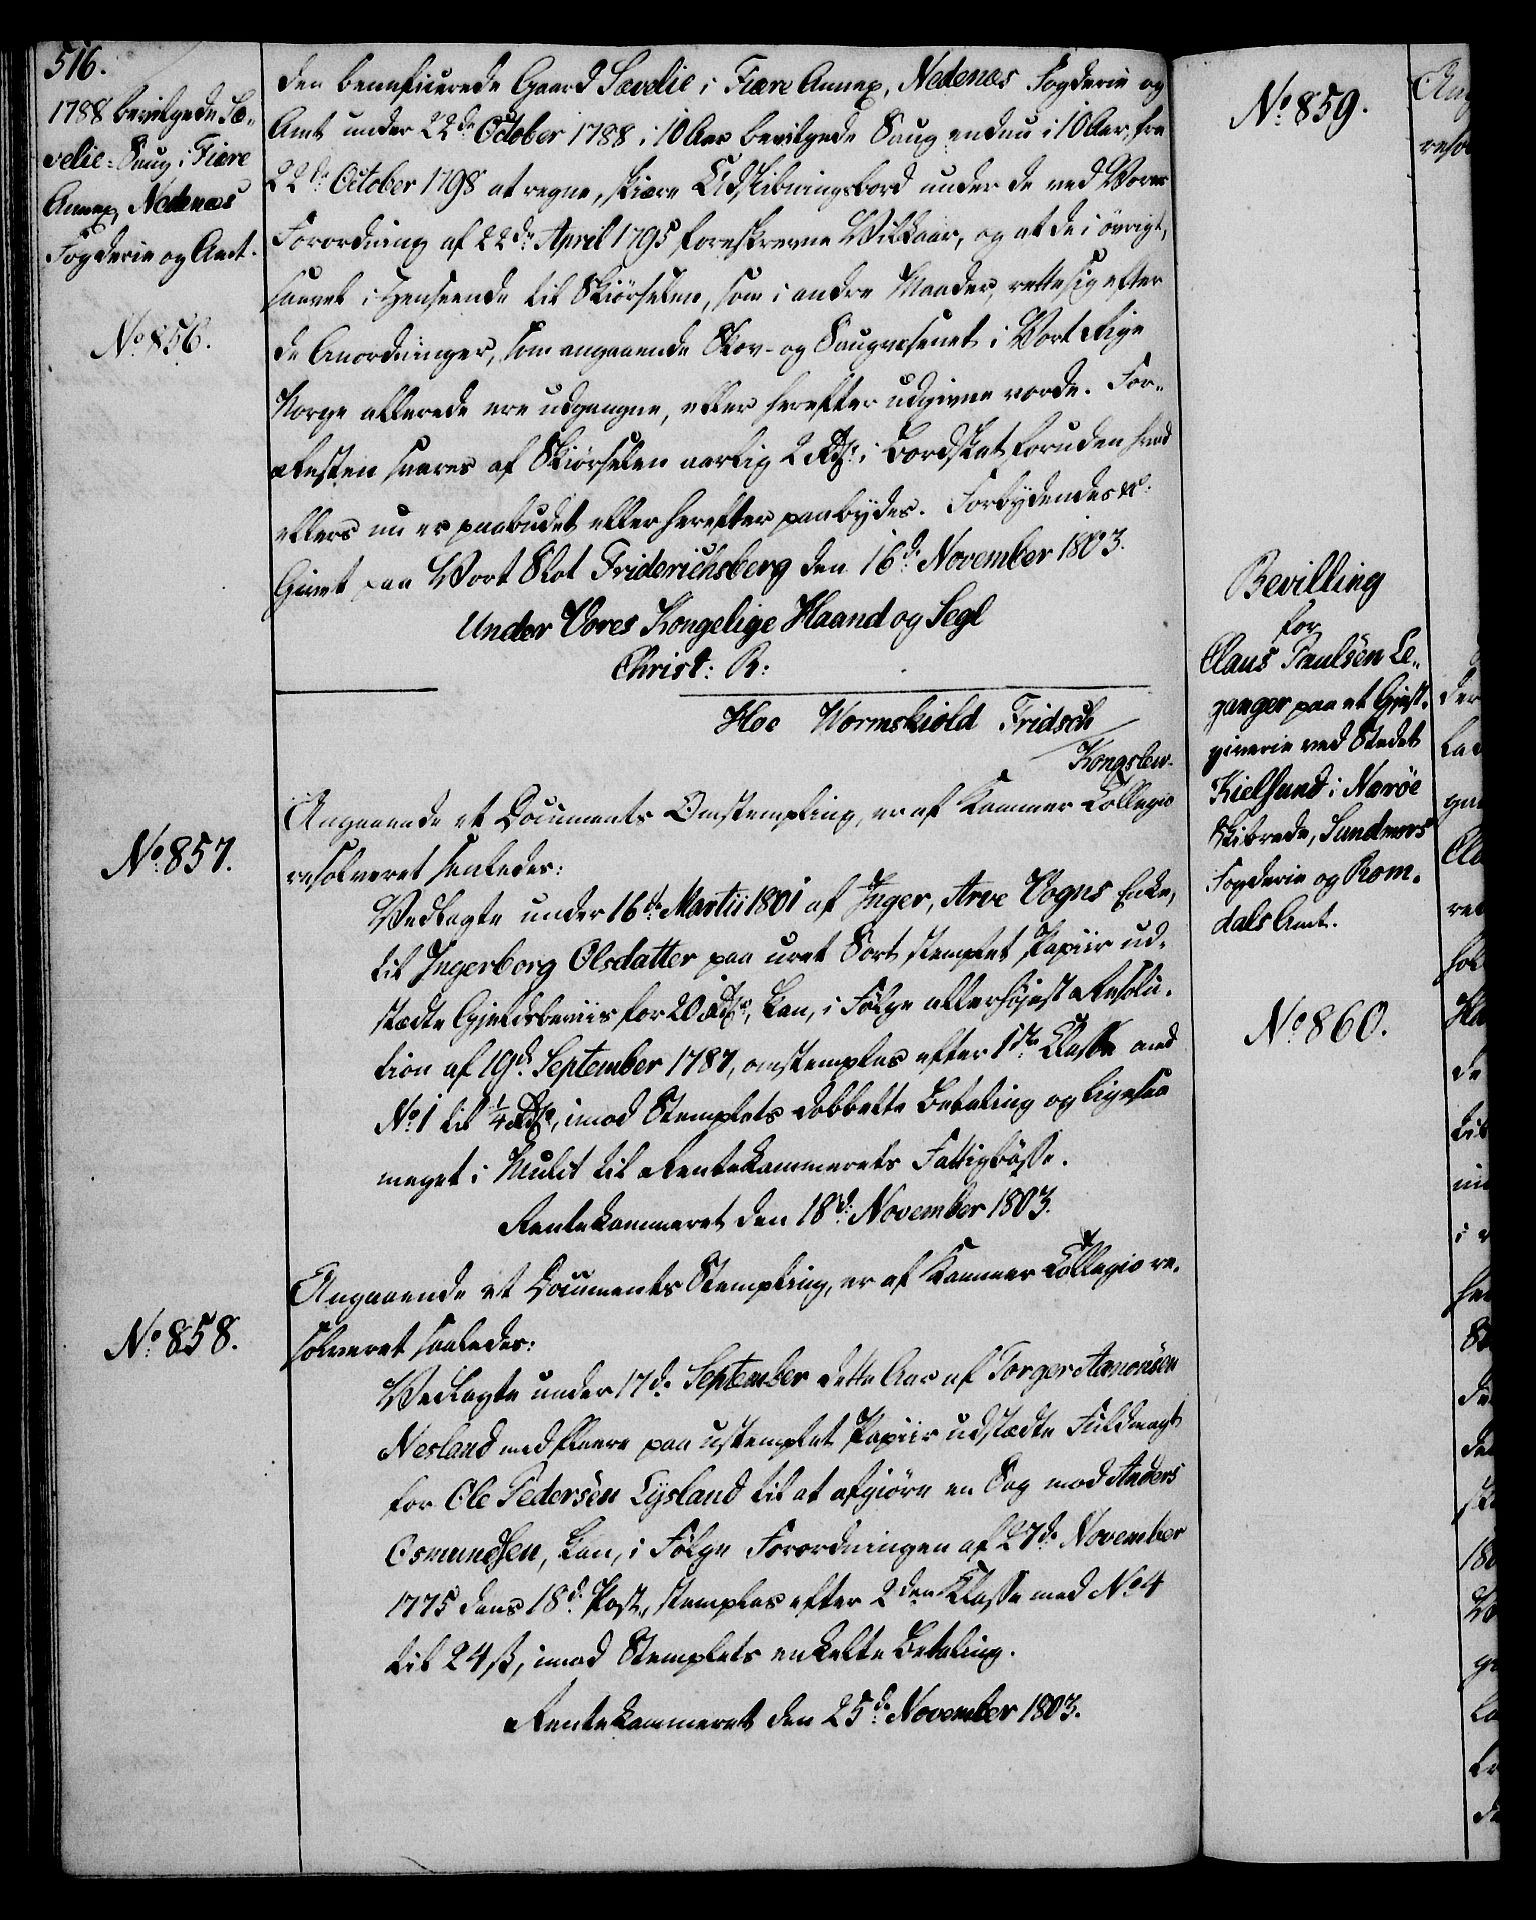 516.
1788 bevilgede Sæ-
velie-Saug i Fiære
Annex, Nedenæs
Fogderie og Amt.
No. 856.
den beneficerede Gaard Sævelie i Fiære Annex, Nedenæs Fogderie og
Amt under 22de October 1788 i 10 Aar bevilgede Saug endnu i 10 Aar, fra
22de October 1798 at regne, skiære Udskibningsbord under de ved Vores
Forordning af 22de April 1795 foreskrevne Vilkaar, og at de i övrigt,
saavel i Henseende til Skiörselen, som i andre Maader, rette sig efter
de Anordninger, som angaaende Skov- og Saugvæsenet i Vort Rige
Norge allerede ere udgangne, eller herefter udgivne vorde. For-
resten svares af Skiörselen aarlig 2 Rdr. i Bordskat foruden hvad
ellers nu er paabudet eller herefter paabydes. Forbydendes &c:
Givet paa Vort Slot Friderichsberg den 16de November 1803.
Under Vores Kongelige Haand og Segl
Christ: R:
Hoe Wormskiold Fridsch
Kongslew.
No. 857.
Angaaende et Documents Omstempling, er af Kammer Collegio
resolveret saaledes:
Vedlagte under 16de Martii 1801 af Inger, Arve Vogns Enke,
til Ingerborg Olsdatter paa uret Sort stemplet Papiir ud-
stædte Gjeldsbeviis for 20 Rdr, kan, i Fölge allerhöjest Resolu-
tion af 19de September 1787, omstemples efter 1ste Classe med
No. 1 til 1/4 Rdr, imod Stemplets dobbelte Betaling og ligesaa
meget i Mulct til Rentekammerets Fattigbösse.
Rentekammeret den 18de November 1803.
No. 858.
Angaaende et Documents Stempling, er af Kammer Collegio re-
solveret saaledes:
Vedlagte under 17de September dette Aar af Torger Aanonsen
Nesland med fleere paa ustemplet Papiir udstædte Fuldmagt
for Ole Pedersen Lysland til at afgiöre en Sag mod Anders
Osmundsen, kan, i Fölge Forordningen af 27de November
1775 dens 18de Post, stemples efter 2den Classe med No 4
til 24 ß, imod Stemplets enkelte Betaling.
Rentekammeret den 25de November 1803.
No. 859.
Bevilling
for
Claus Paulsen Le-
ganger paa et Gjest-
giverie ved Stedet
Kielsund i Naröe
Skibrede, Sundmørs
Fogderie og Rom-
dals Amt.
No. 860.